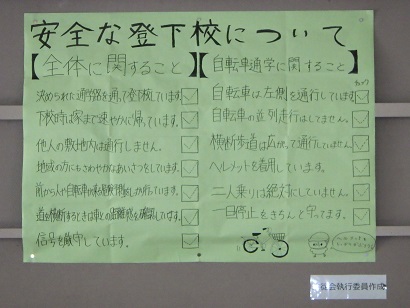 安全な登下校について
【全体に関すること】
決められた通学路を通って登下校しています。
下校時は家まで速やかに帰っています。
他人の敷地内は通行しません。
地域の方にもさわやかなあいさつをしています。
道を横断するときは車との距離を確認しています。
信号を厳守しています。
【自転車通学に関すること】
自転車は左側を通行しています。
自転車の並列走行はしてません。
横断歩道は広がって通行しません。
ヘルメットを着用しています。
二人乗りは絶対にしていません。
一旦停止をきちんと守ってます。
会執行委員作成